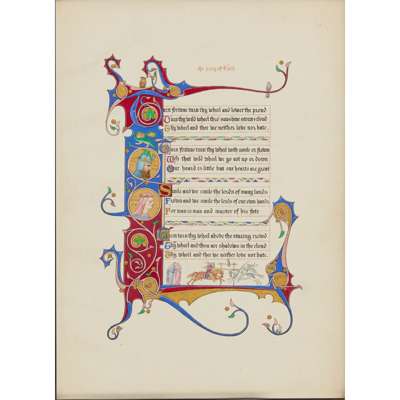 Turn fortune turn thy wheel and lower the proud
Turn thy wild wheel thro' sunshine storm & cloud
Thy wheel and thee we neither love nor hate.
Turn fortune turn thy wheel with smile or frown
With that wild wheel we go not up or down
Our hoard is little but our hearts are great
Smile and we smile the lords of many lands
Frown and we smile the lords of our own hands
For man is man and master of his fate
Turn turn thy wheel above the staring crowd
Thy wheel and thou are shadows in the cloud
Thy wheel and thee we neither love nor hate.